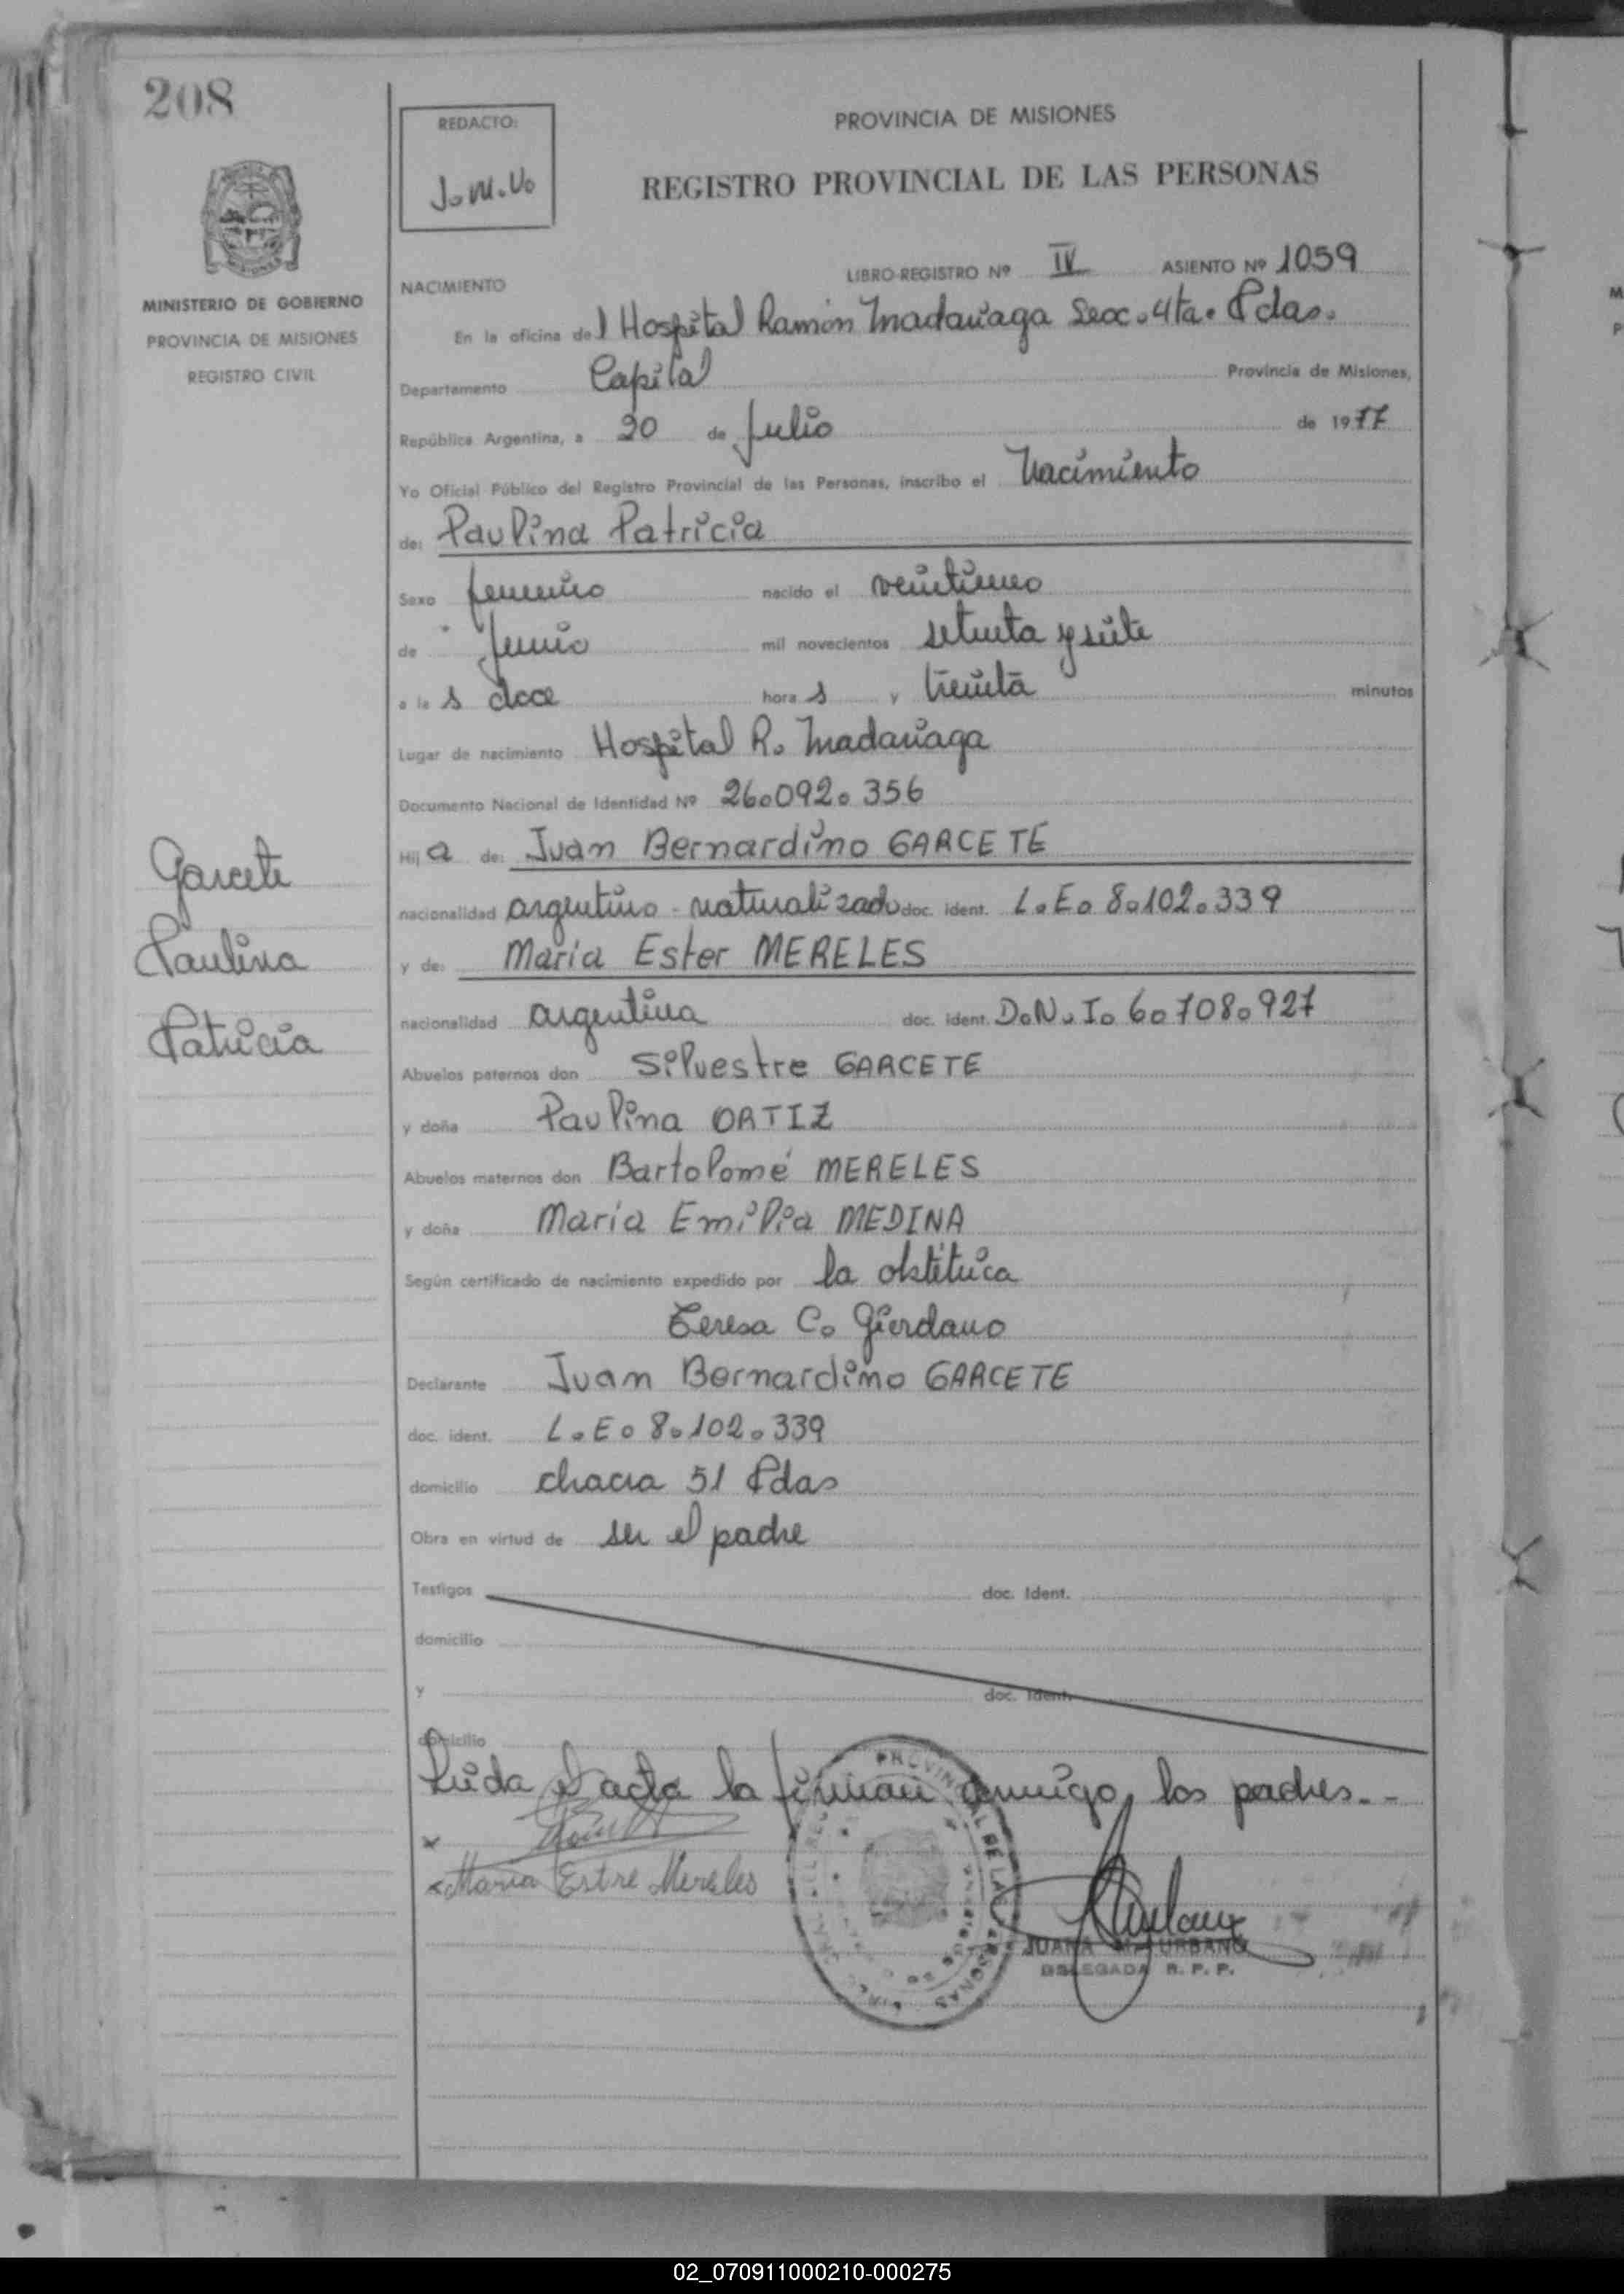 208
REDACTO:
J.M.U.
PROVINCIA DE MISIONES
REGISTRO PROVINCIAL DE LAS PERSONAS
MINISTERIO DE GOBIERNO
PROVINCIA DE MISIONES
REGISTRO CIVIL
LIBRO-REGISTRO Nº IV ASIENTO Nº 1059
NACIMIENTO
En la oficina del Hospital Ramón Madariaga Secc. 4ta. Pdas.
Departamento Capital Provincia de Misiones,
República Argentina, a 20 de Julio de 1977
Yo Oficial Público del Registro Provincial de las Personas, inscribo el Nacimiento
de: Paulina Patricia
Sexo femenino nacido el veintiuno
de Junio mil novecientos setenta y siete
a las doce horas y treinta minutos
Lugar de nacimiento Hospital R. Madariaga
Documento Nacional de Identidad Nº 26.092.356
Hija de: Juan Bernardino GARCETE
nacionalidad argentino-naturalizado doc. ident. L.E. 8.102.339
y de: Maria Ester MERELES
nacionalidad argentina doc. ident. D.N.I. 6.708.927
Abuelos paternos don Silvestre GARCETE
y doña Paulina ORTIZ
Abuelos maternos don Bartolomé MERELES
y doña Maria Emilia MEDINA
Según certificado de nacimiento expedido por la obstétrica
Teresa C. Giordano
Declarante Juan Bernardino GARCETE
doc. ident. L.E. 8.102.339
domicilio chacra 51 Pdas
Obra en virtud de ser el padre
Testigos doc. Ident.
domicilio
y doc. Ident.
domicilio
Leida el acta la firman conmigo, los padres.-
Maria Estre Mereles
JUANA M. URBANO
DELEGADA R. P. P.
Garcete
Paulina
Patricia
02_070911000210-000275